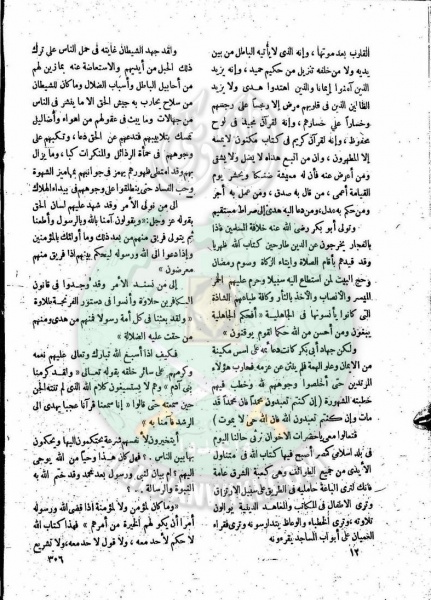 القلوب بعد موتها ، وإنه الذى لا يأتيه الباطل من بين
يديه ولا من خلفه تنزيل من حكيم حميد ، وإنه يزيد
الذين آمنوا إيمانا والذين اهتدوا هدى ولا يزيد
الظالمين الذين فى قلوبهم مرض إلا رجسا على رجسهم
وخسارا على خسارهم ، وإنه لقرآن مجيد فى لوح
محفوظ ، وإنه لقرآن كريم فى كتاب مكنون لا يمسه
إلا المطهرون ، وان من اتبع هداه لا يضل ولا يشقى
ومن أعرض عنه فأن له معيشة ضنكا ويحشر يوم
القيامة أعمى ، من قال به صدق ، ومن عمل به أجر
ومن حكم به عدل، ومن دعا اليه هدى إلى صراط مستقيم
وتولى أبو بكر رضى الله عنه خلافة المسلمين فاذا
بالفجار يخرجون عن الدين طارحين كتاب الله ظهريا
وقد قيدهم بأقام الصلاة وايتاء الزكاة وصوم رمضان
وحج البيت لمن استطاع اليه سبيلا وحرم عليهم الخمر
الميسر والانصاب والأخذ بالثأر وكافة طباعهم الشاذة
التى كانوا يأتونها فى الجاهلية « أفحكم الجاهلية
يبغون ومن أحسن من الله حكما لقوم يوقنون »
ولكن جهاد أبى بكر كانت دعائمه على أسس مكينة
من الايمان وعلو الهمة فلم يثن عن عزمه فحارب هؤلاء
المرتدين حتى أخلصوا وجوههم لله وخطب فيهم
خطبته المشهورة ( إن كنتم تعبدون محمدا فان محمدا قد
مات وإن كنتم تعبدون الله فان الله حى لا يموت )
فتعالوا معى ياحضرات الأخوان نرى حالنا اليوم
فى بلد اسلامى كمصر أصبح فيها كتاب الله فى متناول
الأيدى من جميع الطوائف وهى كعبة الشرق عامة
فانك لترى الباعة حامليه فى الطريق على سبيل الارتزاق
وترى الأطفال فى المكاتب والمعاهد الدينية يوالون
تلاوته ، وترى الخطباء والوعاظ يتدارسونه وترى فقراء
العميان على أبواب المساجد يقرءونه
١٢
ولقد جهد الشيطان غايته فى حمل الناس على ترك
ذلك الحبل من أيديهم والاستعاضة عنه بما زين لهم
من أحابيل الباطل وأسباب الضلال وما كان للشيطان
من سلاح يحارب به جيش الحق الا ما ينشر فى الناس
من جهالات وما يبث فى عقولهم من أهواء وأضاليل
تمسك بتلابيبهم فتندعهم عن الحق دعا ، وتكبهم على
وجوههم فى حمأة الرذائل والمنكرات كبا ، وما يزال
بهم وقد امتطى ظهورهم يهمز فى جوانبهم بمهاميز الشهوة
وحب الفساد حتى ينطلقوا على وجوههم فى بيداء الهلاك
الى من نولى الأمر وقد شهد عليهم لسان الحق
بقوله عز وجل : « ويقولون آمنا بالله وبالرسول وأطعنا
ثم يتولى فريق منهم من بعد ذلك وما أولئك بالمؤمنين
وإذا دعوا الى الله ورسوله ليحكم بينهم اذا فريق منهم
معرضون »
إلى من نسند الأمر وقد وجدوا فى قانون
السكافرين حلاوة وأنسوا فى دستور الفرنجة طلاوة
« ولقد بعثنا فى كل أمة رسولا فمنهم من هدى ومنهم
من حقت عليه الضلالة »
فكيف اذا أسبغ الله تبارك وتعالى عليهم نعمه
وكرمهم على سائر خلقه بقوله تعالى « ولقد كرمنا
بنى آدم » وهم لا يستسيغون كلام الله الذى لم تلبث الجن
حين سمعته حتى قالوا « إنا سمعنا قرآنا عجبا يهدى الى
الرشد فآمنا به »
أيتخيرون لأنفسهم شرعة يحتكمون اليها ويحكمون
بها بين الناس .. ؟ فهل كان هذا وحيا من الله يوحى
اليهم ؟ أم بيان لنبى ورسول بعد محمد وقد ختم الله به
النبوة والرسالة .. ؟
« وما كان لمؤمن ولا مؤمنة اذا قضى الله ورسوله
أمرا أن يكون لهم الخيرة من أمرهم » فهذا كتاب الله
لا حكم لأحد معه ، ولا قول لأحد معه، ولا تشريع
٣٠٦